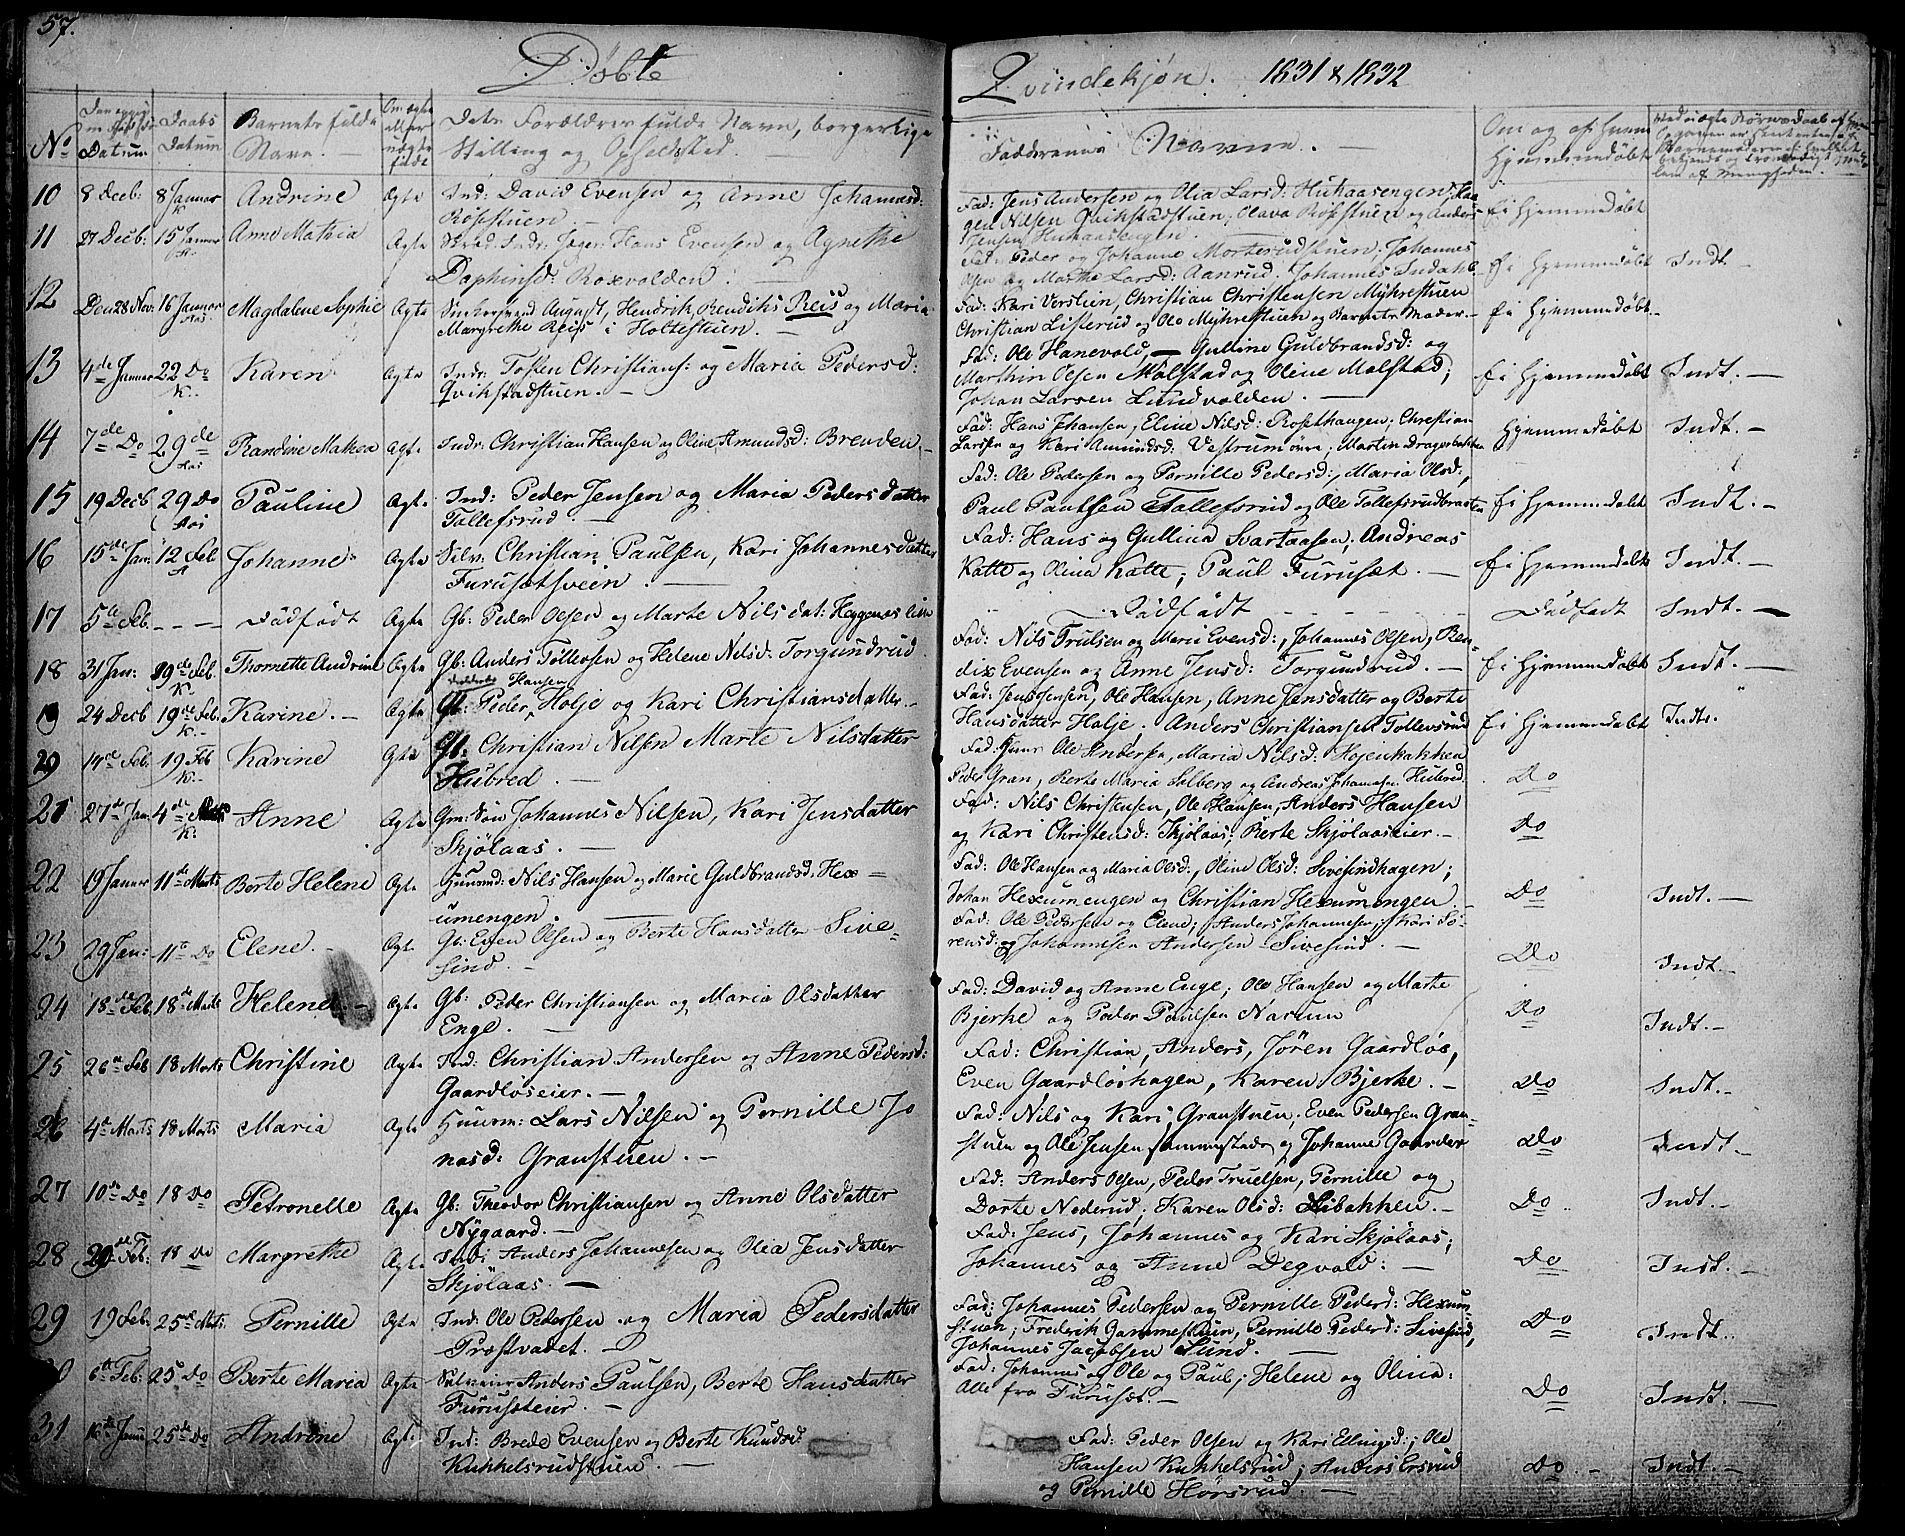 57.
Döbte
Qvindekjön. 1831 & 1832
No
Datum
Daabs Datum
Barnets fulde Navn.
Om ægte eller uægte
Dets Forældres fulde Navn, borgerlige
Stilling og Opholdsted.
Faddernes Navne.
Om og af hvem Hjemmedöbt
10 8 Decb: 8 Januar K Andrine Ægte Ind: David Evensen og Anne Johannesd:
Röisstuen.
Fad: Jens Andersen og Olia Larsd: Hukaasengen;
gen Nilsen Qvikstadstuen; Olava Röisstuen og Anders
Jensen Hukaasengen
ei Hjemmedöbt
11 27 Decb: 15 Januar Anne Mathia Ægte Jæger: Hans Evensen og Agnethe
Roxvolden.
Fad: Peder og Johanne Morterudstuen; Johannes
Olsen og Marthe Larsd: Aanrud. Johannes Indahl
ei Hjemmedöbt Indt.
12 Den 28 Nov: 16 Januar Magdalene Sophie Ægte August, Hendrik Bendiks Reis og Maria
Margrethe Reis i Holtestuen.
Fad: Kari Verslein, Christian Christensen Myhrestuen
Christian Listerud og Ole Myhrestuen og Barnets Moder.
ei Hjemmedöbt
13 4de Januar 22 Do K. Karen Ægte Indr: Tosten Christians: og Maria Pedersd:
Qvikstadstuen.
Fad: Ole Hanevold, Gulline Guldbrandsd: og
Marthin Olsen Molstad og Oline Molstad;
Johan Larsen Lundvolden.
ei Hjemmedöbt Indt.
14 7de Do 29de Randine Mathea Ægte Indr: Christian Hansen og Oline Amundsd: Brenden.
Fad: Hans Johansen, Eline Nilsd: Rosethaugen; Christian
Larsen og Kari Amundsd: Vestrum övre, Martin Dragerbakken
Hjemmedöbt Indt.
15 19 Decb 29 Do Pauline Ægte Ind: Peder Jensen og Maria Pedersdatter
Tollefsrud.
Fad: Ole Pedersen og Pernille Pedersd:, Maria Olsd;
Paul Paulsen Tollefsrud og Ole Tollefsrudbraaten
ei Hjemmedöbt Indt.
16 15de Jan: 12 Feb Johanne Ægte Selv: Christian Paulsen, Kari Johannesdatter
Furusetsveen.
Fad: Hans og Gullina Svartaasen; Andreas
Katte og Olina Katte; Paul Furuset.
ei Hjemmedöbt Indt.
17 5te Feb. Dödfödt Ægte Gb: Peder Olsen og Marte Nilsdat: Heggenes
Dödfödt
Dödfödt Indt.
18 31 Jan: 19de Feb. K. Thornette Andrine Ægte Gb: Anders Tollevsen og Helene Nilsd: Torgundrud
Fad: Nils Trulsen og Mari Evensd:, Johannes Olsen, Ben-
dix Evensen og Anne Jensd: Torgundrud.
ei Hjemmedöbt Indt.
19 24 Decb 19de Feb. K. Karine. Ægte Gb: Peder Hansen Holje og Kari Christiansdatter
Fad: Jens Jensen, Ole Hansen, Anne Jensdatter og Berte
Hansdatter Holje. Anders Christiansen Tollevsrud
ei Hjemmedöbt Indt.
20 14de Feb. 19 Feb K. Karine Ægte Gb: Christian Nilsen Marte Nilsdatter
Hubred.
Fad: Ole Andersen, Maria Nilsd: Hojenbakken
Peder Gran, Berte Maria Solberg og Andreas Johannesen Hubred.
Do
21 27de Jan: 4de Marts K: Anne Ægte Gm: Sön Johannes Nilsen, Kari Jensdatter
Skjölaas.
Fad: Nils Christensen, Ole Hansen, Anders Hansen
og Kari Christensd: Skjölaas; Berte Skjölaaseier.
Do
22 19 Januar 11de Marts Berte Helene Ægte Nils Hansen og Marie Guldbrandsd. Hex-
umengen.
Fad: Ole Hansen og Maria Olsd:, Oline Olsd: Sivesindhagen;
Johan Hexumengen og Christian Hexumengen.
Do Indt.
23 29 Jan: 11te Do Elene. Ægte Gb: Even Olsen og Berte Hansdatter Sive-
sind.
Fad: Ole Pedersen og Elene; Anders Johannesen; Kari Sö-
rensd: og Johannesen Andersen Sivesind.
Do Indt.
24 18de Feb. 18de Marts Helene Ægte Gb: Peder Christiansen og Maria Olsdatter
Enge.
Fad: David og Anne Enge; Ole Hansen og Marte
Bjerke og Peder Paulsen Narum
Do Indt.
25 26de Feb 18 Marts Christine Ægte Ind: Christian Andersen og Anne Pedersd:
Gaardlöseier.
Fad: Christian, Anders, Jören Gaardlös,
Even Gaardlöshagen, Karen Bjerke.
Do Indt.
26 4de Marts 18 Marts Maria Ægte Huusm: Lars Nilsen og Pernille Jo
nasd: Granstuen.
Fad: Nils og Kari Granstuen; Even Pedersen Gran-
stuen og Ole Jensen sammestads og Johanne Gaarder
Do Indt.
27 10de Do 18 Do Petronelle Ægte Gb: Theodor Christiansen og Anne Olsdatter
Nygaard.
Fad: Anders Olsen, Peder Truelsen, Pernille og
Dorte Nederud; Karen Olsd: Libakken.
Do Indt.
28 20de Feb: 18 Do Margrethe Ægte Ind: Anders Johannesen og Olia Jensdatter
Skjölaas.
Fad: Jens, Johannes og Kari Skjölaas;
Johannes og Anne Degvold:
Do Indt.
29 19 Feb. 25de Marts. Pernille Ægte Ind: Ole Pedersen og Maria Pedersdatter
Præstvadet.
Fad: Johannes Pedersen og Pernille Pederd: Hexum-
stuen; Frederik Gammestuen, Pernille Pederd: Sivesind,
Johannes Jacobsen Lund.
Do Indt.
6te Feb. 25 Do Berte Maria Ægte Selveier Anders Paulsen, Berte Hansdatter
Furuseteier.
Fad: Johannes og Ole og Paul; Helene og Olina:
Alle fra Furuset.
Do Indt.
31 25de Do Andrine Ægte Ind: Brede Evensen og Berte Knudsd:
Kukkelsrudstuen.
Fad: Peder Olsen og Kari Ellingsd:; Ole
Hansen Kukkelsrud; Anders Ersrud
og Pernille Horsrud.
Do Indt.